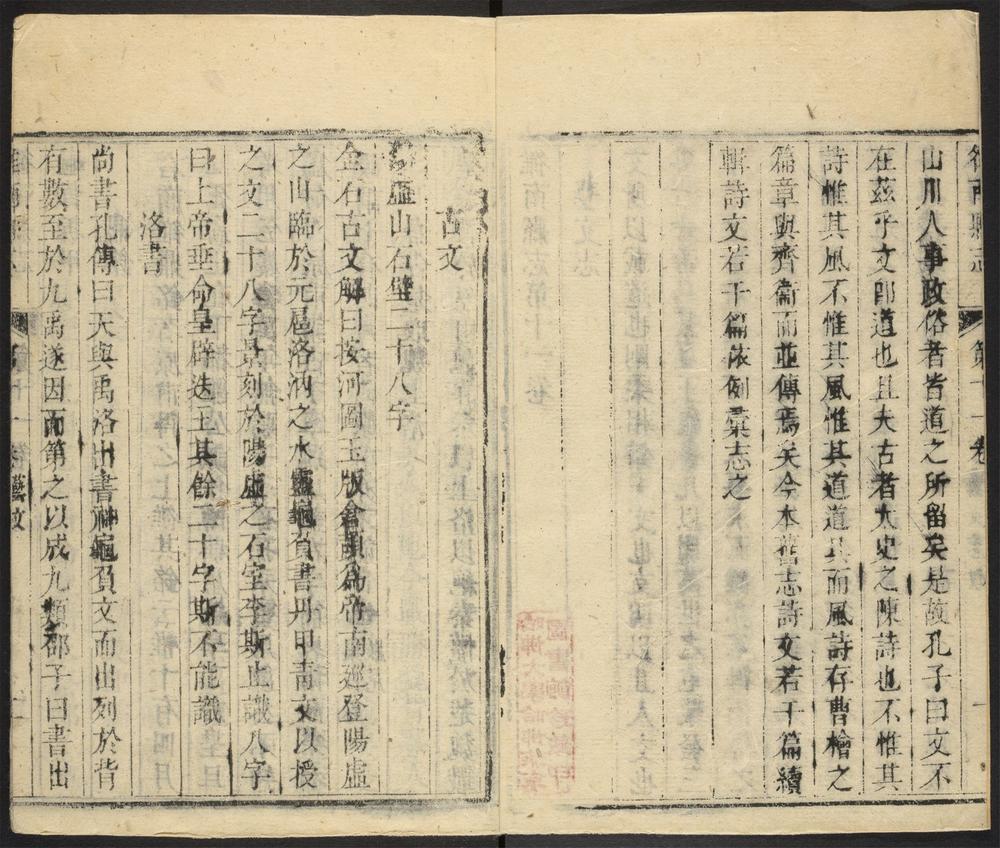 山川人事政俗者皆道之所留矣是故孔子曰文不
在茲乎文卽道也且夫古者大史之陳詩也不惟其
詩惟其風不惟其風惟其道道具而風詩存曹檜之
篇章與齊衞而並傳焉矣今本舊志詩文若干篇續
輯詩文若干篇依例彙志之
古文
虛山石壁二十八字
金石古文解曰按河圖玉版倉頡爲帝南廵登陽虛
之山臨於元扈洛汭之水靈龜負書丹甲靑文以授
之文二十八字景刻於陽虛之石室李斯止識八字
曰上帝垂命皇辟迭王其餘二十字斯不能識
洛書
尚書孔傳曰天與禹洛出書神龜負文而出列於背
有數至於九禹遂因而第之以成九類邵子曰書出
藝文